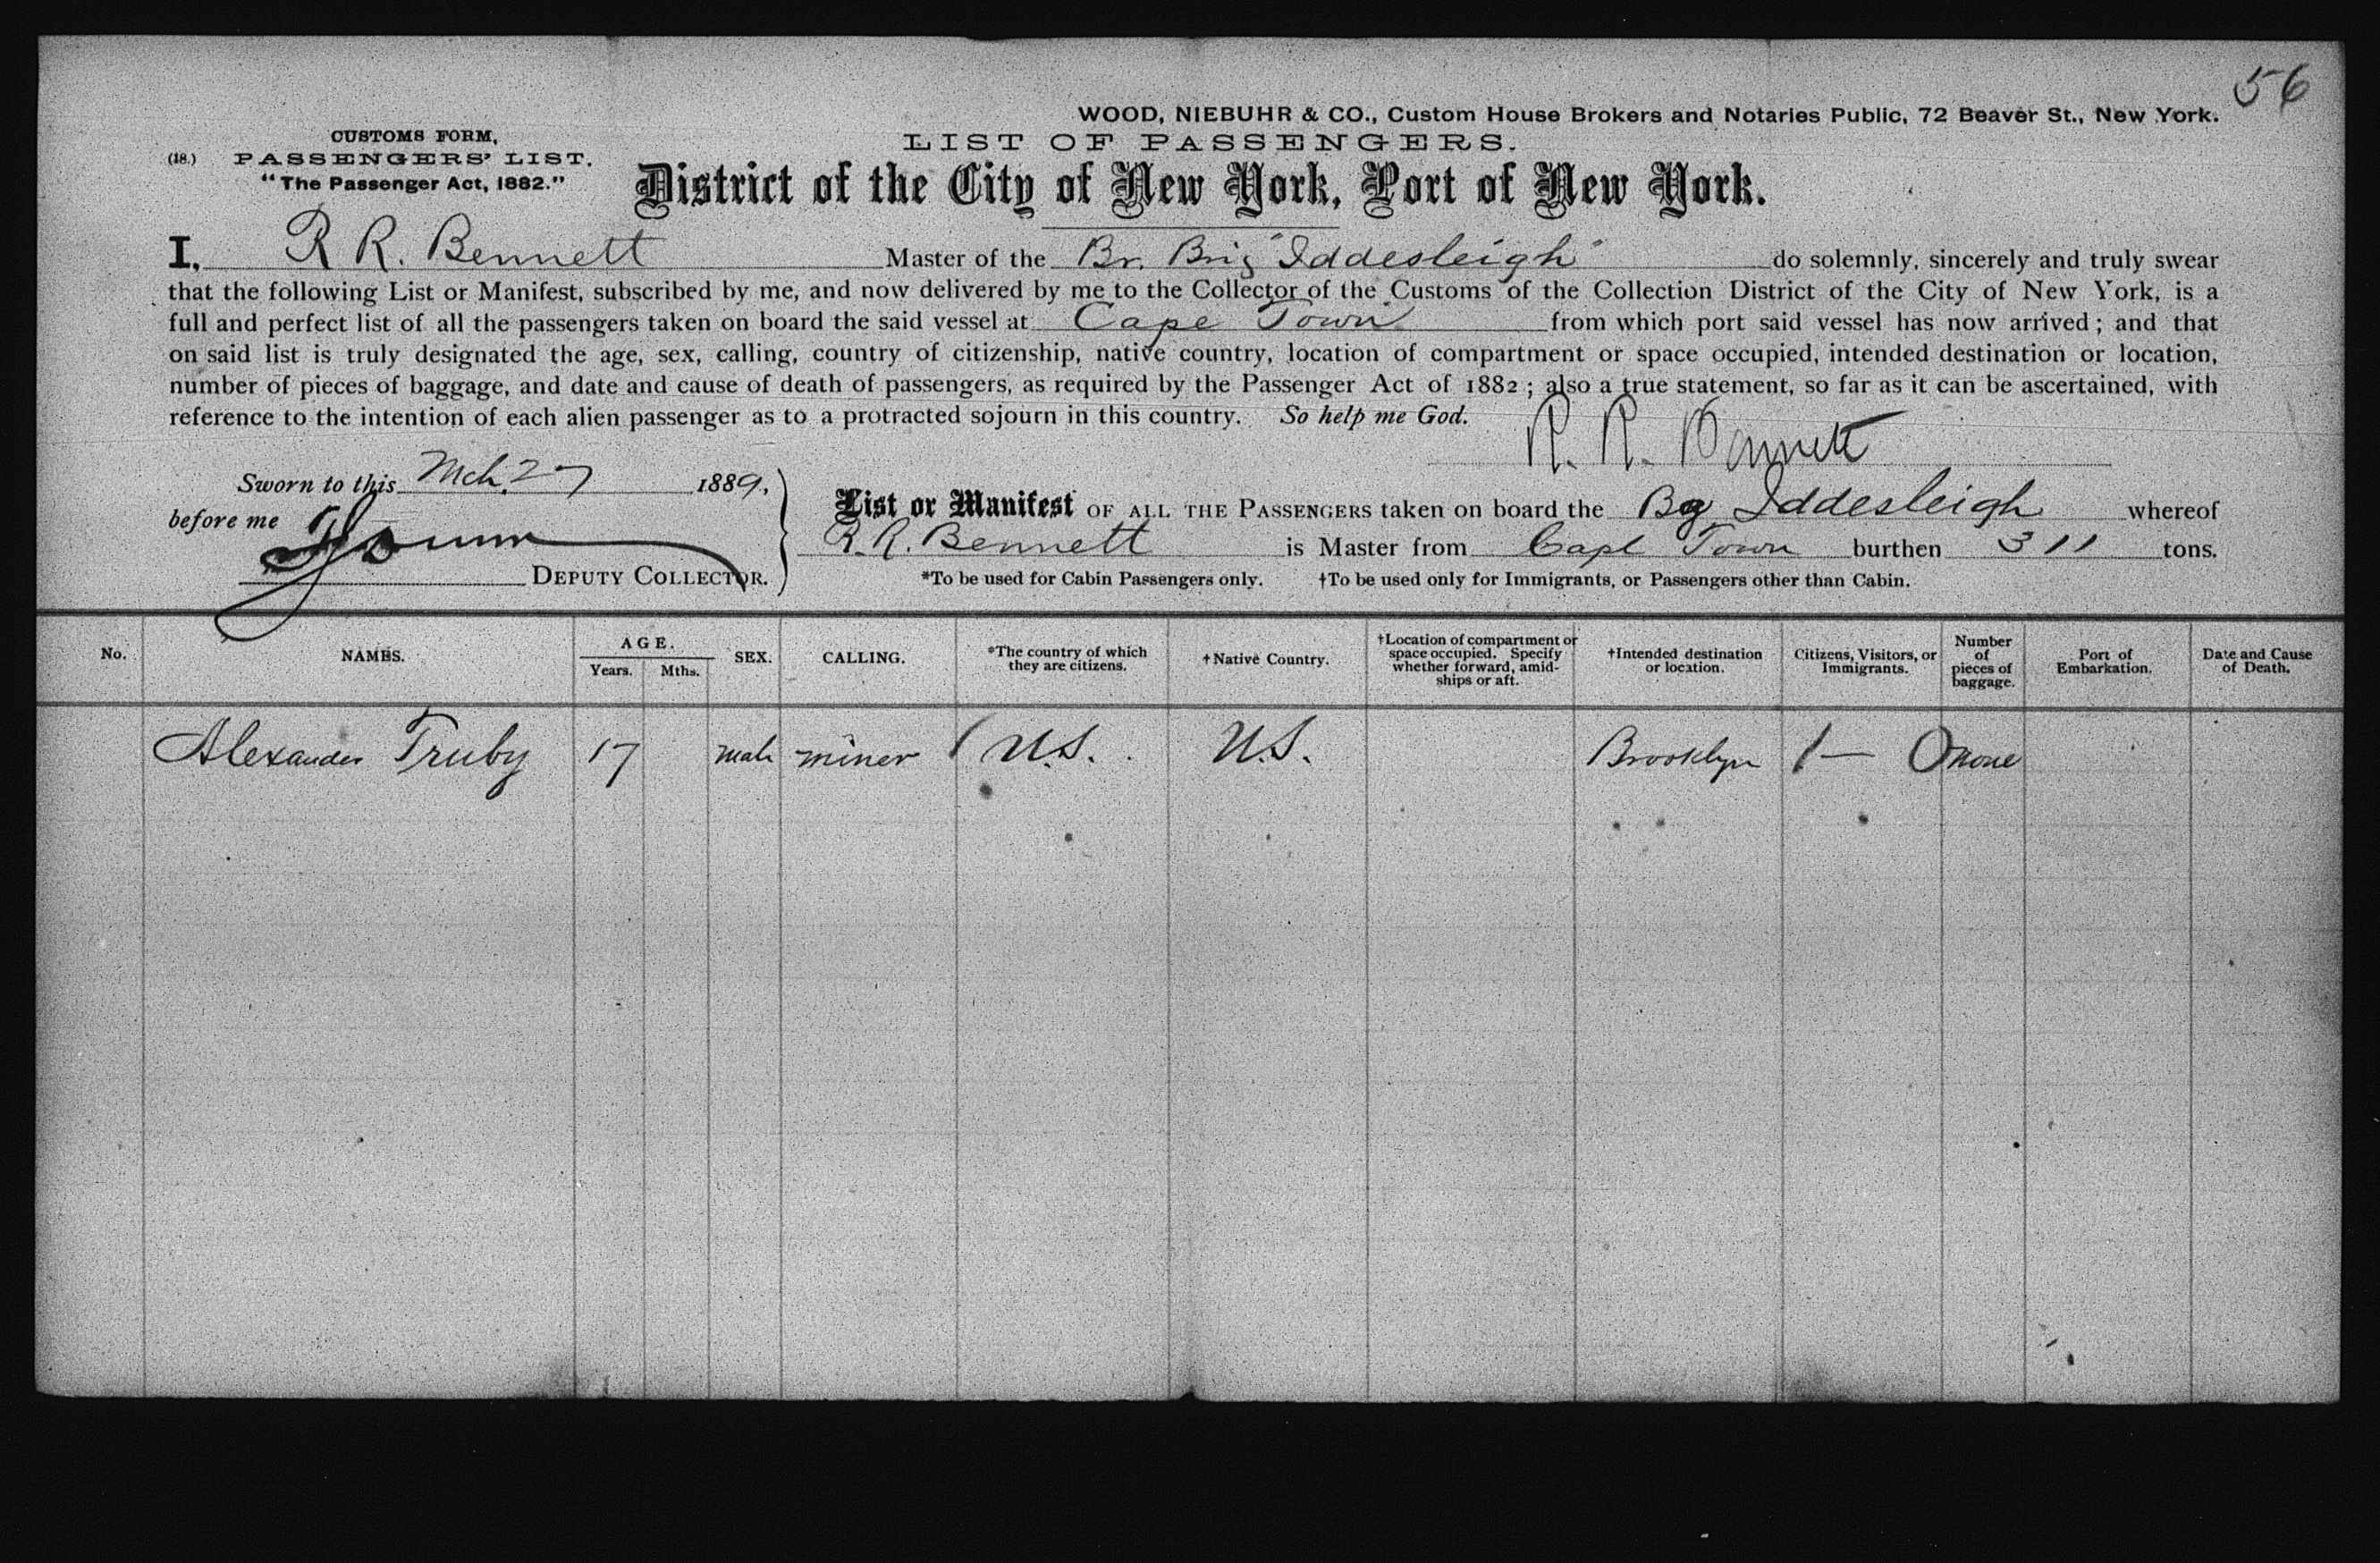 56
WOOD, NIEBUHR & CO., Custom House Brokers and Notaries Public, 72 Beaver St., New York.
CUSTOMS FORM,
LIST OF PASSENGERS.
(18.) PASSENGERS' LIST.
"The Passenger Act, 1882."
District of the City of New York, Port of New York.
I, R R. Bennett Master of the Br. Brig "Iddesleigh" do solemnly, sincerely and truly swear
that the following List or Manifest, subscribed by me, and now delivered by me to the Collector of the Customs of the Collection District of the City of New York, is a
full and perfect list of all the passengers taken on board the said vessel at Cape Town from which port said vessel has now arrived; and that
on said list is truly designated the age, sex, calling, country of citizenship, native country, location of compartment or space occupied, intended destination or location,
number of pieces of baggage, and date and cause of death of passengers, as required by the Passenger Act of 1882; also a true statement, so far as it can be ascertained, with
reference to the intention of each alien passenger as to a protracted sojourn in this country. So help me God.
R. R. Bennett
Sworn to this Mch. 27 1889,
before me
DEPUTY COLLECTOR.
List or Manifest OF ALL THE PASSENGERS taken on board the Bg Iddesleigh whereof
R. R. Bennett is Master from Cape Town burthen 311 tons.
*To be used for Cabin Passengers only. †To be used only for Immigrants, or Passengers other than Cabin.
No. NAMES. AGE. Years. Mths. SEX. CALLING. *The country of which they are citizens. †Native Country. †Location of compartment or space occupied. Specify whether forward, amidships or aft. †Intended destination or location. Citizens, Visitors, or Immigrants. Number of pieces of baggage. Port of Embarkation. Date and Cause of Death.
Alexander Truby 17 male miner U.S. U.S. Brooklyn 1 — 0 none